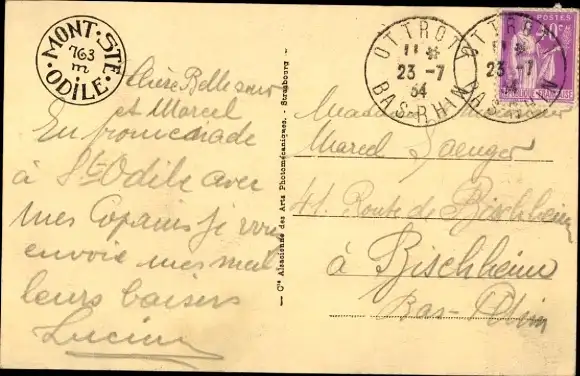 MONT · STE · ODILE ·
763
m
Chère Belle sœur
et Marcel
En promenade
à Ste Odile avec
mes Copains je vous
envoie mes meil
leurs baisers
Lucien
— Cie Alsacienne des Arts Photomécaniques. - Strasbourg —
OTTROTT
11 *
23 -7
34
BAS RHIN
OTTROTT
11 *
23 -7
34
BAS RHIN
POSTES
40c
RÉPUBLIQUE FRANÇAISE
Madame Monsieur
Marcel Saenger
41. Route de Bischheim
à Bischheim
Bas-Rhin